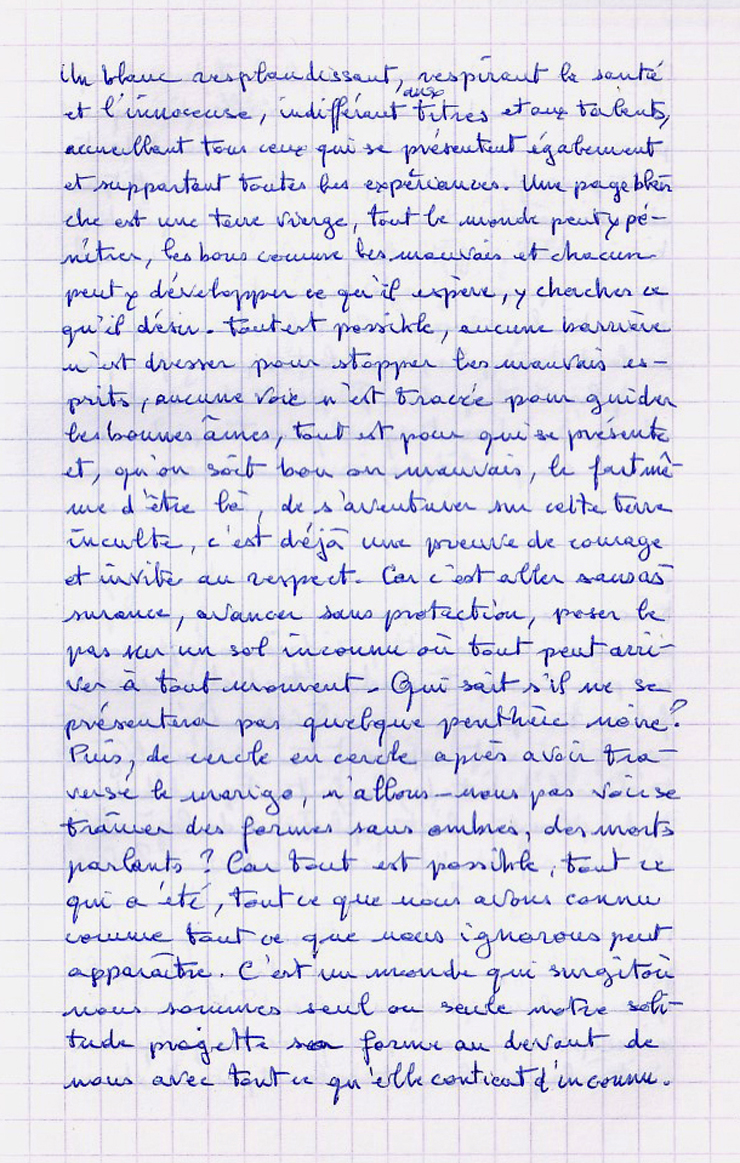 Un blanc resplandissant, respirant la santé
et l'innocense, indifférant aux titres et aux talents,
accueillant tous ceux qui se présentent également
et supportant toutes les expériances. Une page blan
che est une terre vierge, tout le monde peut y pé-
nétrer, les bons comme les mauvais et chacun
peut y développer ce qu'il espère, y chercher ce
qu'il désir. Tout est possible, aucune barrière
n'est dresser pour stopper les mauvais es-
prits, aucune voie n'est tracée pour guider
les bonnes âmes, tout est pour qui se présente
et, qu'on soit bon ou mauvais, le fait mê-
me d'être là, de s'aventurer sur cette terre
inculte, c'est déjà une preuve de courage
et invite au respect. Car c'est aller sans as
surance, avancer sans protection, poser le
pas sur un sol inconnu où tout peut arri-
ver à tout moment. Qui sait s'il ne se
présentera pas quelque penthère noire?
Puis, de cercle en cercle après avoir tra-
versé le marigo, n'allons-nous pas voir se
traîner des formes sans ombres, des morts
parlants? Car tout est possible, tout ce
qui a été, tout ce que nous avons connu
comme tout ce que nous ignorons peut
apparaître. C'est un monde qui surgit où
nous sommes seul ou seule notre soli-
tude progette sa forme au devant de
nous avec tout ce qu'elle contient d'inconnu.